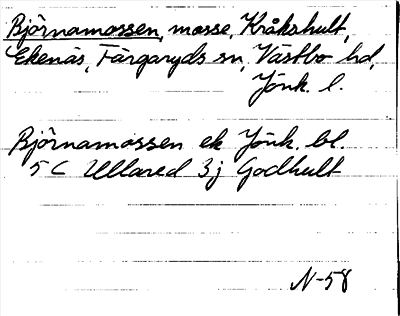 Björnamossen, mosse, Kråkshult,
Ekenäs, Färgaryds sn, Västbo hd,
Jönk. l.
Björnamossen ek Jönk. bl.
5 C Ullared 3j Godhult
N-58